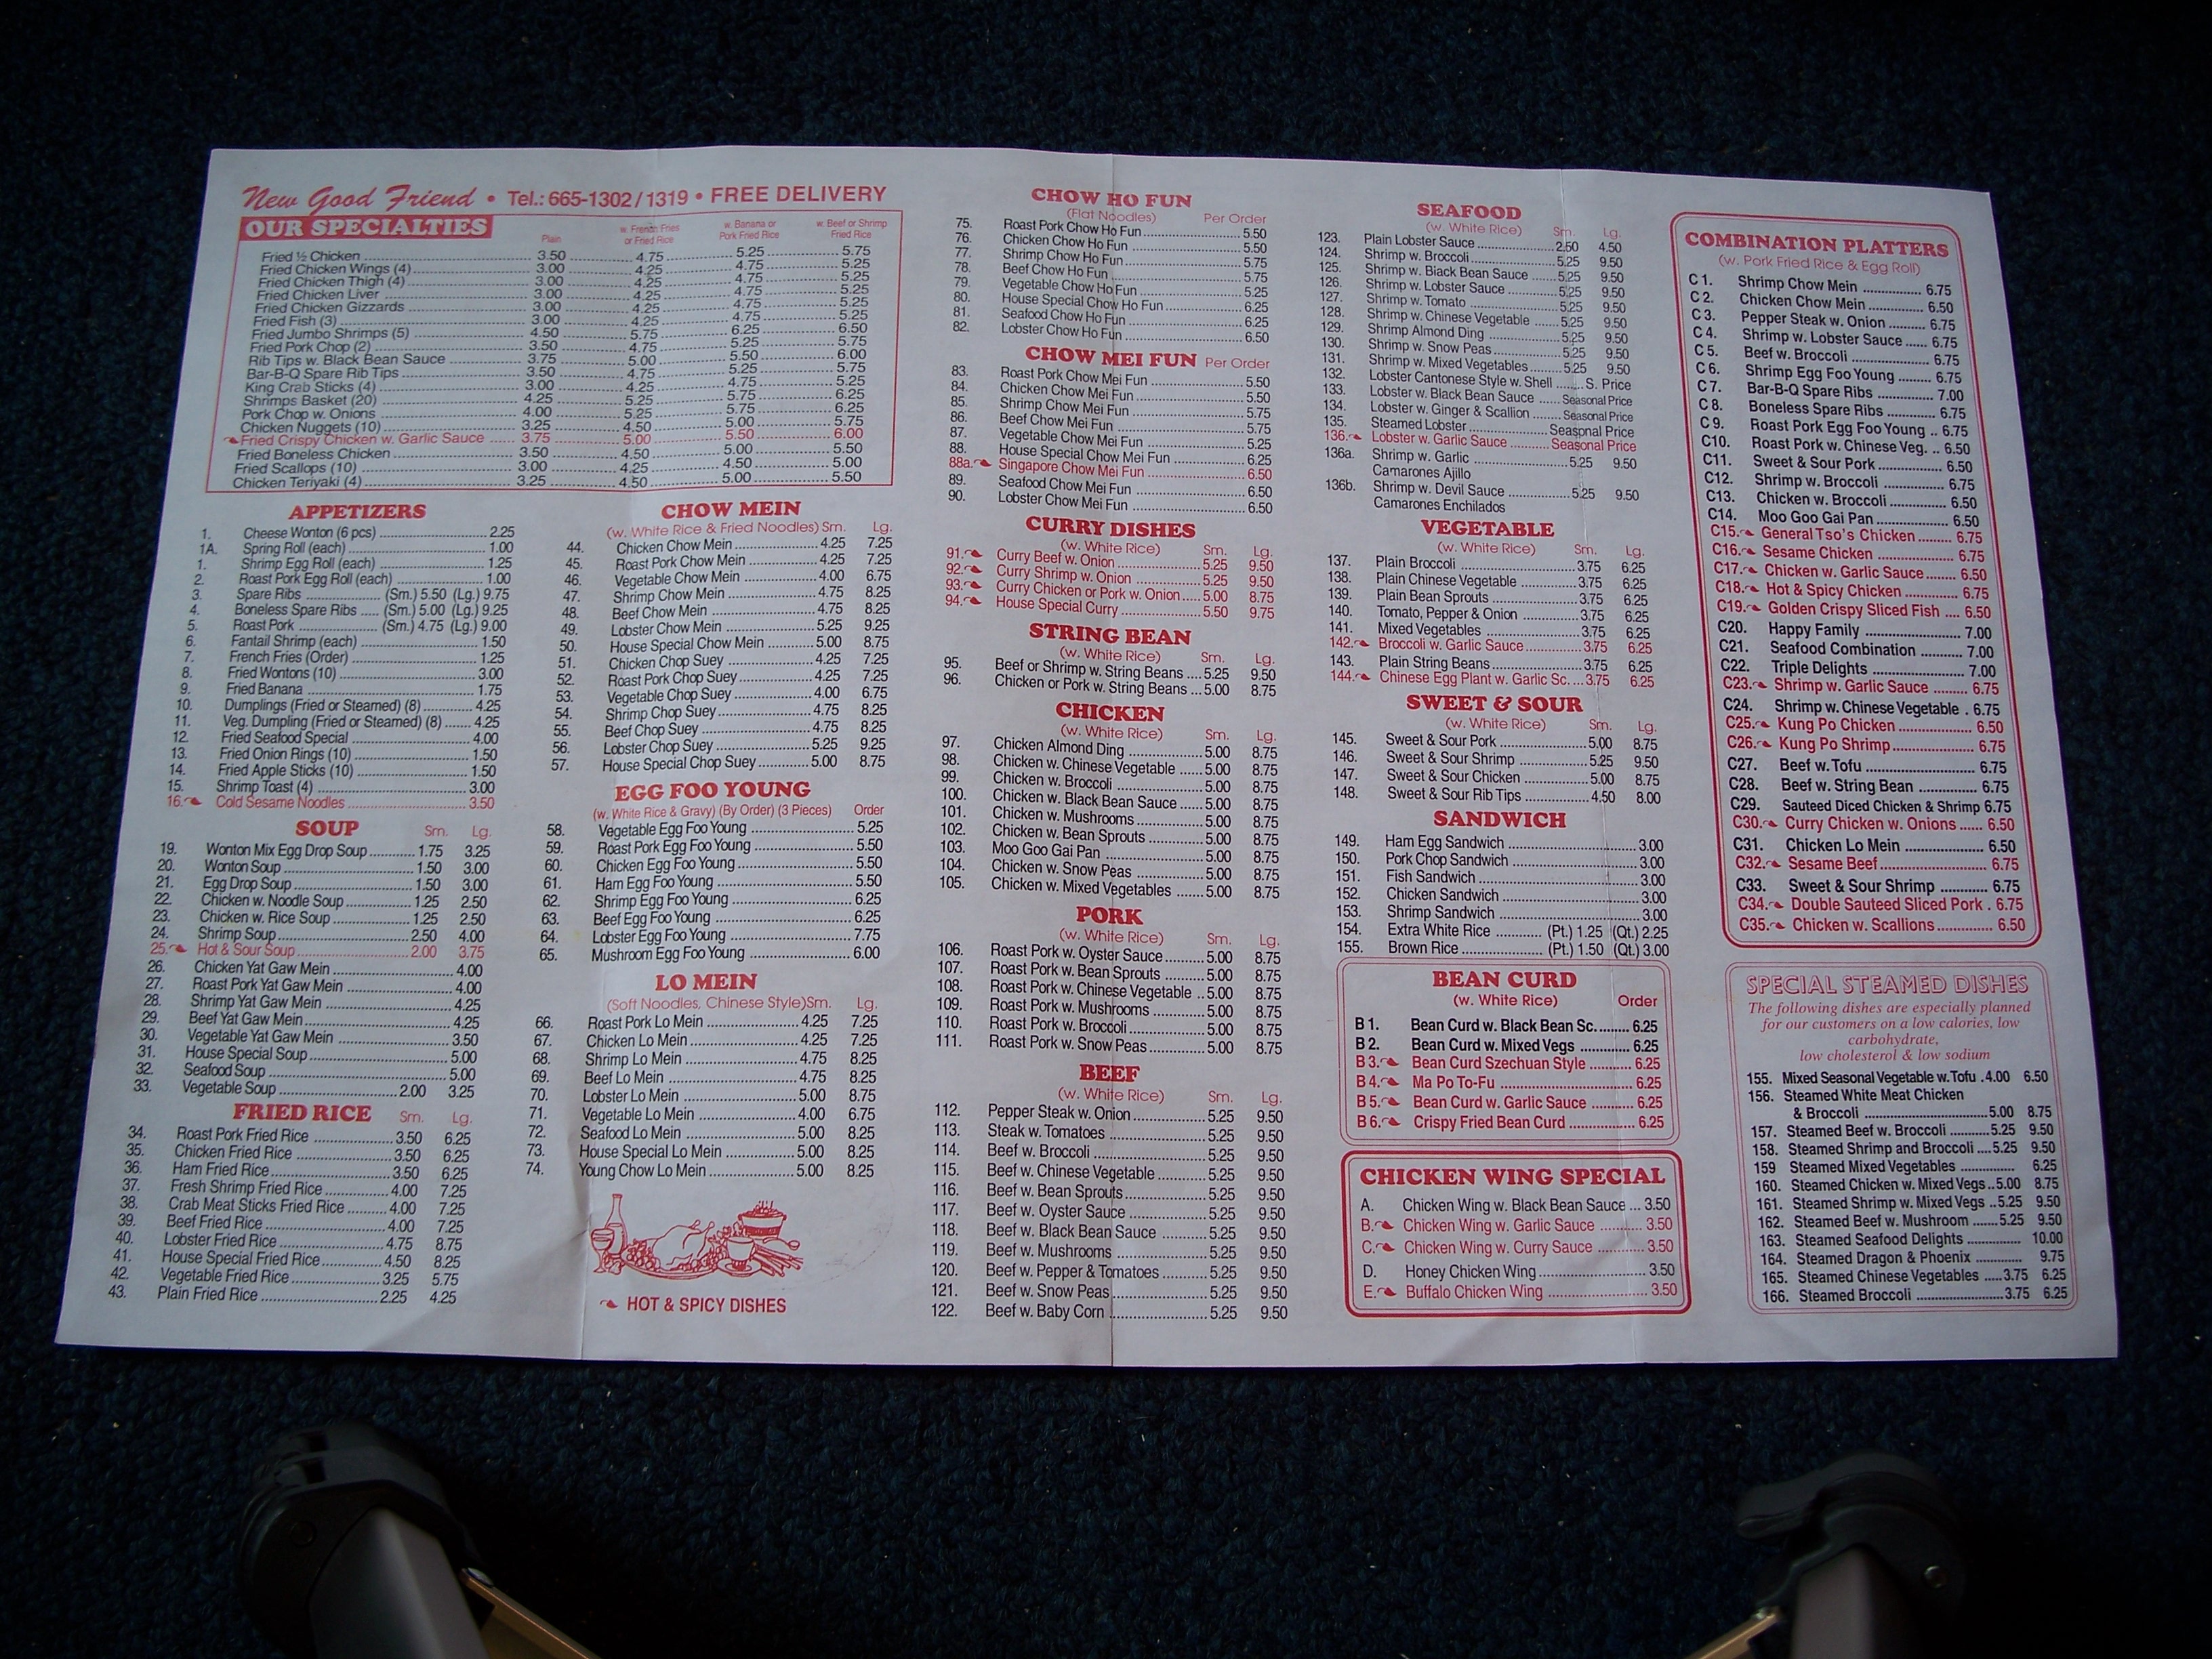 New Good Friend • Tel.: 665-1302 / 1319 • FREE DELIVERY
OUR SPECIALTIES
Plain w. French Fries or Fried Rice w. Banana or Pork Fried Rice w. Beef or Shrimp Fried Rice
Fried ½ Chicken 3.50 4.75 5.25 5.75
Fried Chicken Wings (4) 3.00 4.25 4.75 5.25
Fried Chicken Thigh (4) 3.00 4.25 4.75 5.25
Fried Chicken Liver 3.00 4.25 4.75 5.25
Fried Chicken Gizzards 3.00 4.25 4.75 5.25
Fried Fish (3) 3.00 4.25 4.75 5.25
Fried Jumbo Shrimps (5) 4.50 5.75 6.25 6.50
Fried Pork Chop (2) 3.50 4.75 5.25 5.75
Rib Tips w. Black Bean Sauce 3.75 5.00 5.50 6.00
Bar-B-Q Spare Rib Tips 3.50 4.75 5.25 5.75
King Crab Sticks (4) 3.00 4.25 4.75 5.25
Shrimps Basket (20) 4.25 5.25 5.75 6.25
Pork Chop w. Onions 4.00 5.25 5.75 6.25
Chicken Nuggets (10) 3.25 4.50 5.00 5.75
Fried Crispy Chicken w. Garlic Sauce 3.75 5.00 5.50 6.00
Fried Boneless Chicken 3.50 4.50 5.00 5.50
Fried Scallops (10) 3.00 4.25 4.50 5.00
Chicken Teriyaki (4) 3.25 4.50 5.00 5.50
APPETIZERS
1. Cheese Wonton (6 pcs) 2.25
1A. Spring Roll (each) 1.00
1. Shrimp Egg Roll (each) 1.25
2. Roast Pork Egg Roll (each) 1.00
3. Spare Ribs (Sm.) 5.50 (Lg.) 9.75
4. Boneless Spare Ribs (Sm.) 5.00 (Lg.) 9.25
5. Roast Pork (Sm.) 4.75 (Lg.) 9.00
6. Fantail Shrimp (each) 1.50
7. French Fries (Order) 1.25
8. Fried Wontons (10) 3.00
9. Fried Banana 1.75
10. Dumplings (Fried or Steamed) (8) 4.25
11. Veg. Dumpling (Fried or Steamed) (8) 4.25
12. Fried Seafood Special 4.00
13. Fried Onion Rings (10) 1.50
14. Fried Apple Sticks (10) 1.50
15. Shrimp Toast (4) 3.00
16. Cold Sesame Noodles 3.50
SOUP Sm. Lg.
19. Wonton Mix Egg Drop Soup 1.75 3.25
20. Wonton Soup 1.50 3.00
21. Egg Drop Soup 1.50 3.00
22. Chicken w. Noodle Soup 1.25 2.50
23. Chicken w. Rice Soup 1.25 2.50
24. Shrimp Soup 2.50 4.00
25. Hot & Sour Soup 2.00 3.75
26. Chicken Yat Gaw Mein 4.00
27. Roast Pork Yat Gaw Mein 4.00
28. Shrimp Yat Gaw Mein 4.25
29. Beef Yat Gaw Mein 4.25
30. Vegetable Yat Gaw Mein 3.50
31. House Special Soup 5.00
32. Seafood Soup 5.00
33. Vegetable Soup 2.00 3.25
FRIED RICE Sm. Lg.
34. Roast Pork Fried Rice 3.50 6.25
35. Chicken Fried Rice 3.50 6.25
36. Ham Fried Rice 3.50 6.25
37. Fresh Shrimp Fried Rice 4.00 7.25
38. Crab Meat Sticks Fried Rice 4.00 7.25
39. Beef Fried Rice 4.00 7.25
40. Lobster Fried Rice 4.75 8.75
41. House Special Fried Rice 4.50 8.25
42. Vegetable Fried Rice 3.25 5.75
43. Plain Fried Rice 2.25 4.25
CHOW MEIN
(w. White Rice & Fried Noodles) Sm. Lg.
44. Chicken Chow Mein 4.25 7.25
45. Roast Pork Chow Mein 4.25 7.25
46. Vegetable Chow Mein 4.00 6.75
47. Shrimp Chow Mein 4.75 8.25
48. Beef Chow Mein 4.75 8.25
49. Lobster Chow Mein 5.25 9.25
50. House Special Chow Mein 5.00 8.75
51. Chicken Chop Suey 4.25 7.25
52. Roast Pork Chop Suey 4.25 7.25
53. Vegetable Chop Suey 4.00 6.75
54. Shrimp Chop Suey 4.75 8.25
55. Beef Chop Suey 4.75 8.25
56. Lobster Chop Suey 5.25 9.25
57. House Special Chop Suey 5.00 8.75
EGG FOO YOUNG
(w. White Rice & Gravy) (By Order) (3 Pieces) Order
58. Vegetable Egg Foo Young 5.25
59. Roast Pork Egg Foo Young 5.50
60. Chicken Egg Foo Young 5.50
61. Ham Egg Foo Young 5.50
62. Shrimp Egg Foo Young 6.25
63. Beef Egg Foo Young 6.25
64. Lobster Egg Foo Young 7.75
65. Mushroom Egg Foo Young 6.00
LO MEIN
(Soft Noodles, Chinese Style) Sm. Lg.
66. Roast Pork Lo Mein 4.25 7.25
67. Chicken Lo Mein 4.25 7.25
68. Shrimp Lo Mein 4.75 8.25
69. Beef Lo Mein 4.75 8.25
70. Lobster Lo Mein 5.00 8.75
71. Vegetable Lo Mein 4.00 6.75
72. Seafood Lo Mein 5.00 8.25
73. House Special Lo Mein 5.00 8.25
74. Young Chow Lo Mein 5.00 8.25
HOT & SPICY DISHES
CHOW HO FUN
(Flat Noodles) Per Order
75. Roast Pork Chow Ho Fun 5.50
76. Chicken Chow Ho Fun 5.50
77. Shrimp Chow Ho Fun 5.75
78. Beef Chow Ho Fun 5.75
79. Vegetable Chow Ho Fun 5.25
80. House Special Chow Ho Fun 6.25
81. Seafood Chow Ho Fun 6.25
82. Lobster Chow Ho Fun 6.50
CHOW MEI FUN Per Order
83. Roast Pork Chow Mei Fun 5.50
84. Chicken Chow Mei Fun 5.50
85. Shrimp Chow Mei Fun 5.75
86. Beef Chow Mei Fun 5.75
87. Vegetable Chow Mei Fun 5.25
88. House Special Chow Mei Fun 6.25
88a. Singapore Chow Mei Fun 6.50
89. Seafood Chow Mei Fun 6.50
90. Lobster Chow Mei Fun 6.50
CURRY DISHES
(w. White Rice) Sm. Lg.
91. Curry Beef w. Onion 5.25 9.50
92. Curry Shrimp w. Onion 5.25 9.50
93. Curry Chicken or Pork w. Onion 5.00 8.75
94. House Special Curry 5.50 9.75
STRING BEAN
(w. White Rice) Sm. Lg.
95. Beef or Shrimp w. String Beans 5.25 9.50
96. Chicken or Pork w. String Beans 5.00 8.75
CHICKEN
(w. White Rice) Sm. Lg.
97. Chicken Almond Ding 5.00 8.75
98. Chicken w. Chinese Vegetable 5.00 8.75
99. Chicken w. Broccoli 5.00 8.75
100. Chicken w. Black Bean Sauce 5.00 8.75
101. Chicken w. Mushrooms 5.00 8.75
102. Chicken w. Bean Sprouts 5.00 8.75
103. Moo Goo Gai Pan 5.00 8.75
104. Chicken w. Snow Peas 5.00 8.75
105. Chicken w. Mixed Vegetables 5.00 8.75
PORK
(w. White Rice) Sm. Lg.
106. Roast Pork w. Oyster Sauce 5.00 8.75
107. Roast Pork w. Bean Sprouts 5.00 8.75
108. Roast Pork w. Chinese Vegetable 5.00 8.75
109. Roast Pork w. Mushrooms 5.00 8.75
110. Roast Pork w. Broccoli 5.00 8.75
111. Roast Pork w. Snow Peas 5.00 8.75
BEEF
(w. White Rice) Sm. Lg.
112. Pepper Steak w. Onion 5.25 9.50
113. Steak w. Tomatoes 5.25 9.50
114. Beef w. Broccoli 5.25 9.50
115. Beef w. Chinese Vegetable 5.25 9.50
116. Beef w. Bean Sprouts 5.25 9.50
117. Beef w. Oyster Sauce 5.25 9.50
118. Beef w. Black Bean Sauce 5.25 9.50
119. Beef w. Mushrooms 5.25 9.50
120. Beef w. Pepper & Tomatoes 5.25 9.50
121. Beef w. Snow Peas 5.25 9.50
122. Beef w. Baby Corn 5.25 9.50
SEAFOOD
(w. White Rice) Sm. Lg.
123. Plain Lobster Sauce 2.50 4.50
124. Shrimp w. Broccoli 5.25 9.50
125. Shrimp w. Black Bean Sauce 5.25 9.50
126. Shrimp w. Lobster Sauce 5.25 9.50
127. Shrimp w. Tomato 5.25 9.50
128. Shrimp w. Chinese Vegetable 5.25 9.50
129. Shrimp Almond Ding 5.25 9.50
130. Shrimp w. Snow Peas 5.25 9.50
131. Shrimp w. Mixed Vegetables 5.25 9.50
132. Lobster Cantonese Style w. Shell S. Price
133. Lobster w. Black Bean Sauce Seasonal Price
134. Lobster w. Ginger & Scallion Seasonal Price
135. Steamed Lobster Seasonal Price
136. Lobster w. Garlic Sauce Seasonal Price
136a. Shrimp w. Garlic 5.25 9.50
Camarones Ajillo
136b. Shrimp w. Devil Sauce 5.25 9.50
Camarones Enchilados
VEGETABLE
(w. White Rice) Sm. Lg.
137. Plain Broccoli 3.75 6.25
138. Plain Chinese Vegetable 3.75 6.25
139. Plain Bean Sprouts 3.75 6.25
140. Tomato, Pepper & Onion 3.75 6.25
141. Mixed Vegetables 3.75 6.25
142. Broccoli w. Garlic Sauce 3.75 6.25
143. Plain String Beans 3.75 6.25
144. Chinese Egg Plant w. Garlic Sc. 3.75 6.25
SWEET & SOUR
(w. White Rice) Sm. Lg.
145. Sweet & Sour Pork 5.00 8.75
146. Sweet & Sour Shrimp 5.25 9.50
147. Sweet & Sour Chicken 5.00 8.75
148. Sweet & Sour Rib Tips 4.50 8.00
SANDWICH
149. Ham Egg Sandwich 3.00
150. Pork Chop Sandwich 3.00
151. Fish Sandwich 3.00
152. Chicken Sandwich 3.00
153. Shrimp Sandwich 3.00
154. Extra White Rice (Pt.) 1.25 (Qt.) 2.25
155. Brown Rice (Pt.) 1.50 (Qt.) 3.00
BEAN CURD
(w. White Rice) Order
B 1. Bean Curd w. Black Bean Sc. 6.25
B 2. Bean Curd w. Mixed Vegs 6.25
B 3. Bean Curd Szechuan Style 6.25
B 4. Ma Po To-Fu 6.25
B 5. Bean Curd w. Garlic Sauce 6.25
B 6. Crispy Fried Bean Curd 6.25
CHICKEN WING SPECIAL
A. Chicken Wing w. Black Bean Sauce 3.50
B. Chicken Wing w. Garlic Sauce 3.50
C. Chicken Wing w. Curry Sauce 3.50
D. Honey Chicken Wing 3.50
E. Buffalo Chicken Wing 3.50
COMBINATION PLATTERS
(w. Pork Fried Rice & Egg Roll)
C 1. Shrimp Chow Mein 6.75
C 2. Chicken Chow Mein 6.50
C 3. Pepper Steak w. Onion 6.75
C 4. Shrimp w. Lobster Sauce 6.75
C 5. Beef w. Broccoli 6.75
C 6. Shrimp Egg Foo Young 6.75
C 7. Bar-B-Q Spare Ribs 7.00
C 8. Boneless Spare Ribs 6.75
C 9. Roast Pork Egg Foo Young 6.75
C10. Roast Pork w. Chinese Veg. 6.50
C11. Sweet & Sour Pork 6.50
C12. Shrimp w. Broccoli 6.75
C13. Chicken w. Broccoli 6.50
C14. Moo Goo Gai Pan 6.50
C15. General Tso's Chicken 6.75
C16. Sesame Chicken 6.75
C17. Chicken w. Garlic Sauce 6.50
C18. Hot & Spicy Chicken 6.75
C19. Golden Crispy Sliced Fish 6.50
C20. Happy Family 7.00
C21. Seafood Combination 7.00
C22. Triple Delights 7.00
C23. Shrimp w. Garlic Sauce 6.75
C24. Shrimp w. Chinese Vegetable 6.75
C25. Kung Po Chicken 6.50
C26. Kung Po Shrimp 6.75
C27. Beef w. Tofu 6.75
C28. Beef w. String Bean 6.75
C29. Sauteed Diced Chicken & Shrimp 6.75
C30. Curry Chicken w. Onions 6.50
C31. Chicken Lo Mein 6.50
C32. Sesame Beef 6.75
C33. Sweet & Sour Shrimp 6.75
C34. Double Sauteed Sliced Pork 6.75
C35. Chicken w. Scallions 6.50
SPECIAL STEAMED DISHES
The following dishes are especially planned
for our customers on a low calories, low
carbohydrate,
low cholesterol & low sodium
155. Mixed Seasonal Vegetable w. Tofu 4.00 6.50
156. Steamed White Meat Chicken
& Broccoli 5.00 8.75
157. Steamed Beef w. Broccoli 5.25 9.50
158. Steamed Shrimp and Broccoli 5.25 9.50
159 Steamed Mixed Vegetables 6.25
160. Steamed Chicken w. Mixed Vegs 5.00 8.75
161. Steamed Shrimp w. Mixed Vegs 5.25 9.50
162. Steamed Beef w. Mushroom 5.25 9.50
163. Steamed Seafood Delights 10.00
164. Steamed Dragon & Phoenix 9.75
165. Steamed Chinese Vegetables 3.75 6.25
166. Steamed Broccoli 3.75 6.25